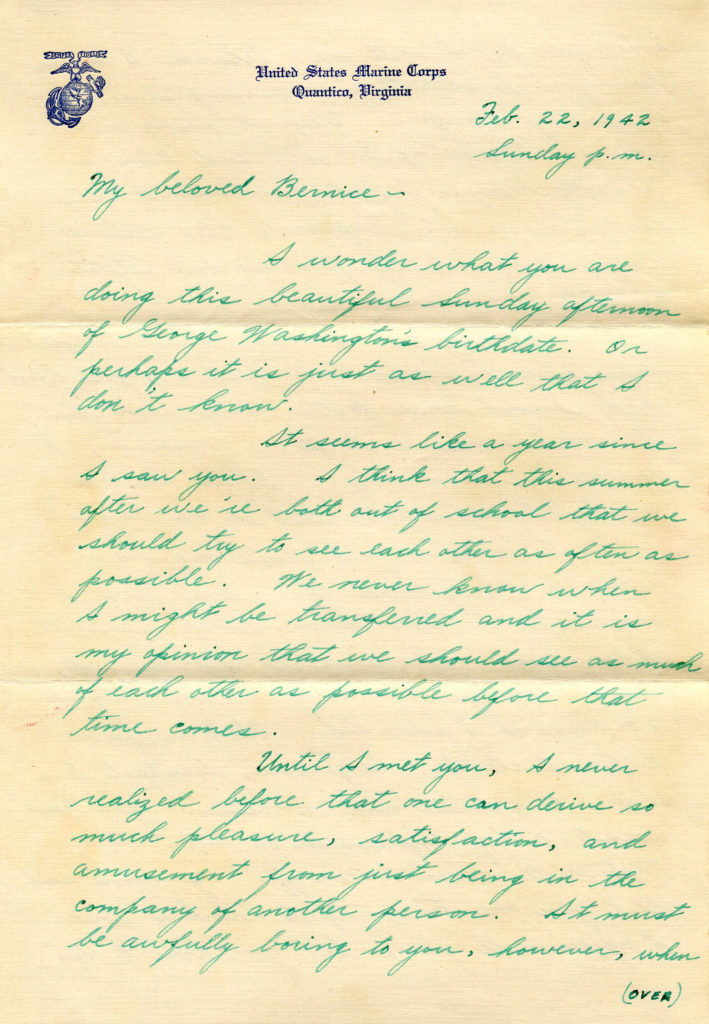 SEMPER FIDELIS
United States Marine Corps
Quantico, Virginia
Feb. 22, 1942
Sunday p.m.
My beloved Bernice –
I wonder what you are
doing this beautiful Sunday afternoon
of George Washington's birthdate. Or
perhaps it is just as well that I
don't know.
It seems like a year since
I saw you. I think that this summer
after we're both out of school that we
should try to see each other as often as
possible. We never know when
I might be transferred and it is
my opinion that we should see as much
of each other as possible before that
time comes.
Until I met you, I never
realized before that one can derive so
much pleasure, satisfaction, and
amusement from just being in the
company of another person. It must
be awfully boring to you, however, when
(OVER)